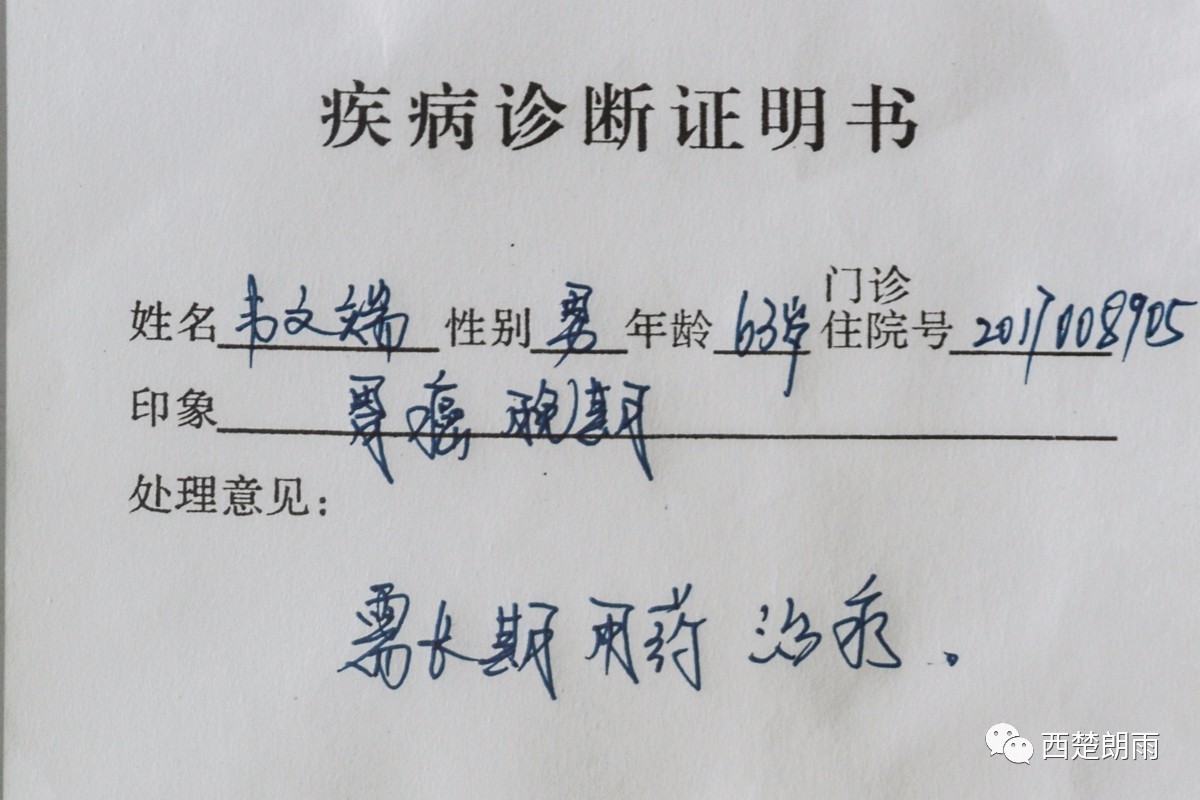 疾病诊断证明书
姓名 韦文端 性别 男 年龄 63岁 门诊住院号 2017008905
印象 胃癌 晚期
处理意见：
需长期用药 治疗。
西楚朗雨